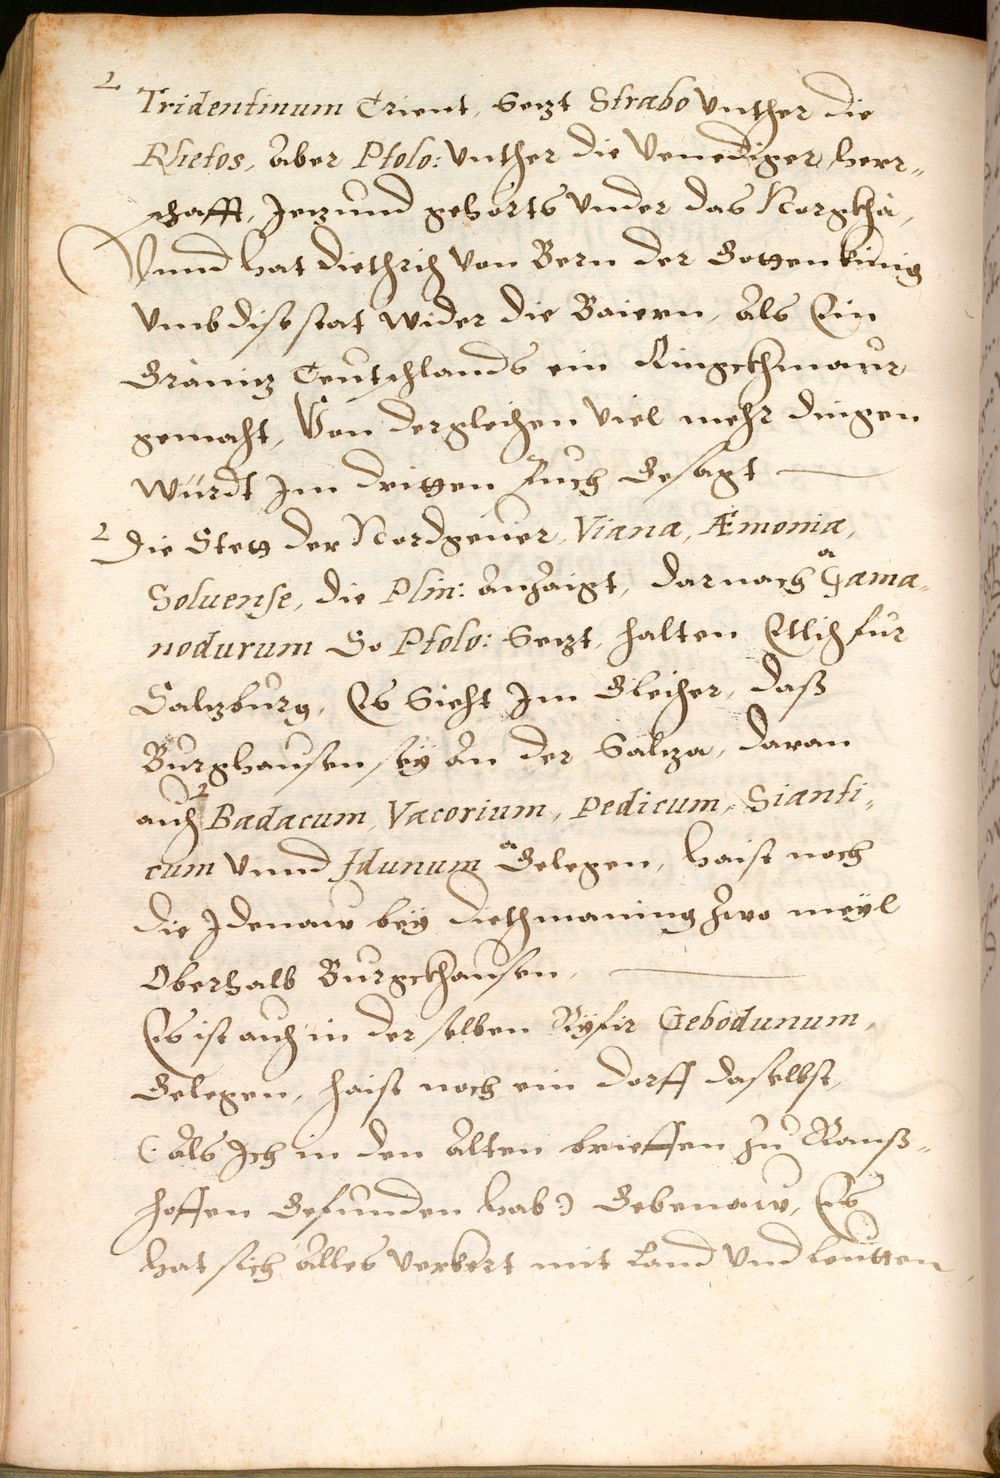 Tridentinum Trient, Setzt Strabo Vnther die
Rhetos, Aber Ptolo: Vnther die Venediger herr„
schafft, Jetzund gehörts Vnder das Norgkhä,
Vnnd hat diethrich Von Bern der Gotten künig
Vmb dise stat wider die Baiern, Als Ein
Gränitz Teutschlands ein Ringckhmaur
gemacht, Von dergleichen Viel mehr dingen
würdt Jm dritten Buch Gesagt
Die Stett der Nordgeuer, Viana, Æmonia,
Soluense, die Plin: Anzaigt, darnach Gama„
nodurum So Ptolo: Setzt, halten Etlich für
Saltzburg, Es Sicht Jm Gleicher, daß
Burghausen seÿ An der Saltza, daran
auch Badacum, Vacorium, Pedicum, Sianti„
cum Vnnd Idunum Gelegen, haist noch
die Jdenaw beÿ diethmaning zwo meÿl
Oberhalb Burgckhausen.
Es ist auch in der selben Rÿfir Gebodunum,
Gelegen, haist noch ein dorff daselbst,
(Als Jch in den Alten brieffen zu Ranß„
hoffen Gefunden hab) Gebenaw, Es
hat sich Alles Verkert mit Land Vnd Leutten